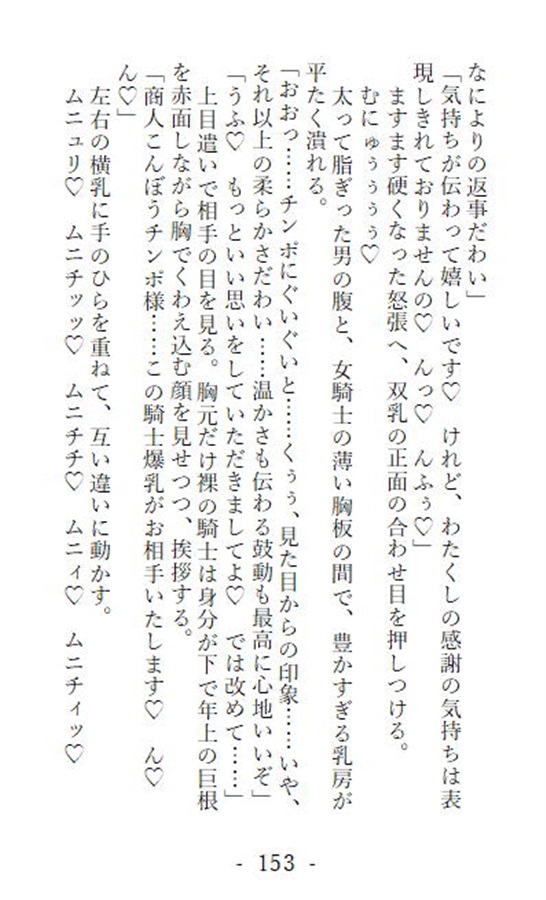 なによりの返事だわい」
「気持ちが伝わって嬉しいです♡　けれど、わたくしの感謝の気持ちは表
現しきれておりませんの♡　んっ♡　んふぅ♡」
ますます硬くなった怒張へ、双乳の正面の合わせ目を押しつける。
むにゅぅぅぅぅ♡
太って脂ぎった男の腹と、女騎士の薄い胸板の間で、豊かすぎる乳房が
平たく潰れる。
「おおっ……チンポにぐいぐいと……くぅぅ、見た目からの印象……いや、
それ以上の柔らかさだわい……温かさも伝わる鼓動も最高に心地いいぞ」
「うふ♡　もっといい思いをしていただきましてよ♡　では改めて……」
上目遣いで相手の目を見る。胸元だけ裸の騎士は身分が下で年上の巨根
を赤面しながら胸でくわえ込む顔を見せつつ、挨拶する。
「商人こんぼうチンポ様……この騎士爆乳がお相手いたします♡　ん♡
ん♡」
左右の横乳に手のひらを重ねて、互い違いに動かす。
ムニュリ♡　ムニチッッ♡　ムニチチ♡　ムニィ♡　ムニチィッ♡
- 153 -